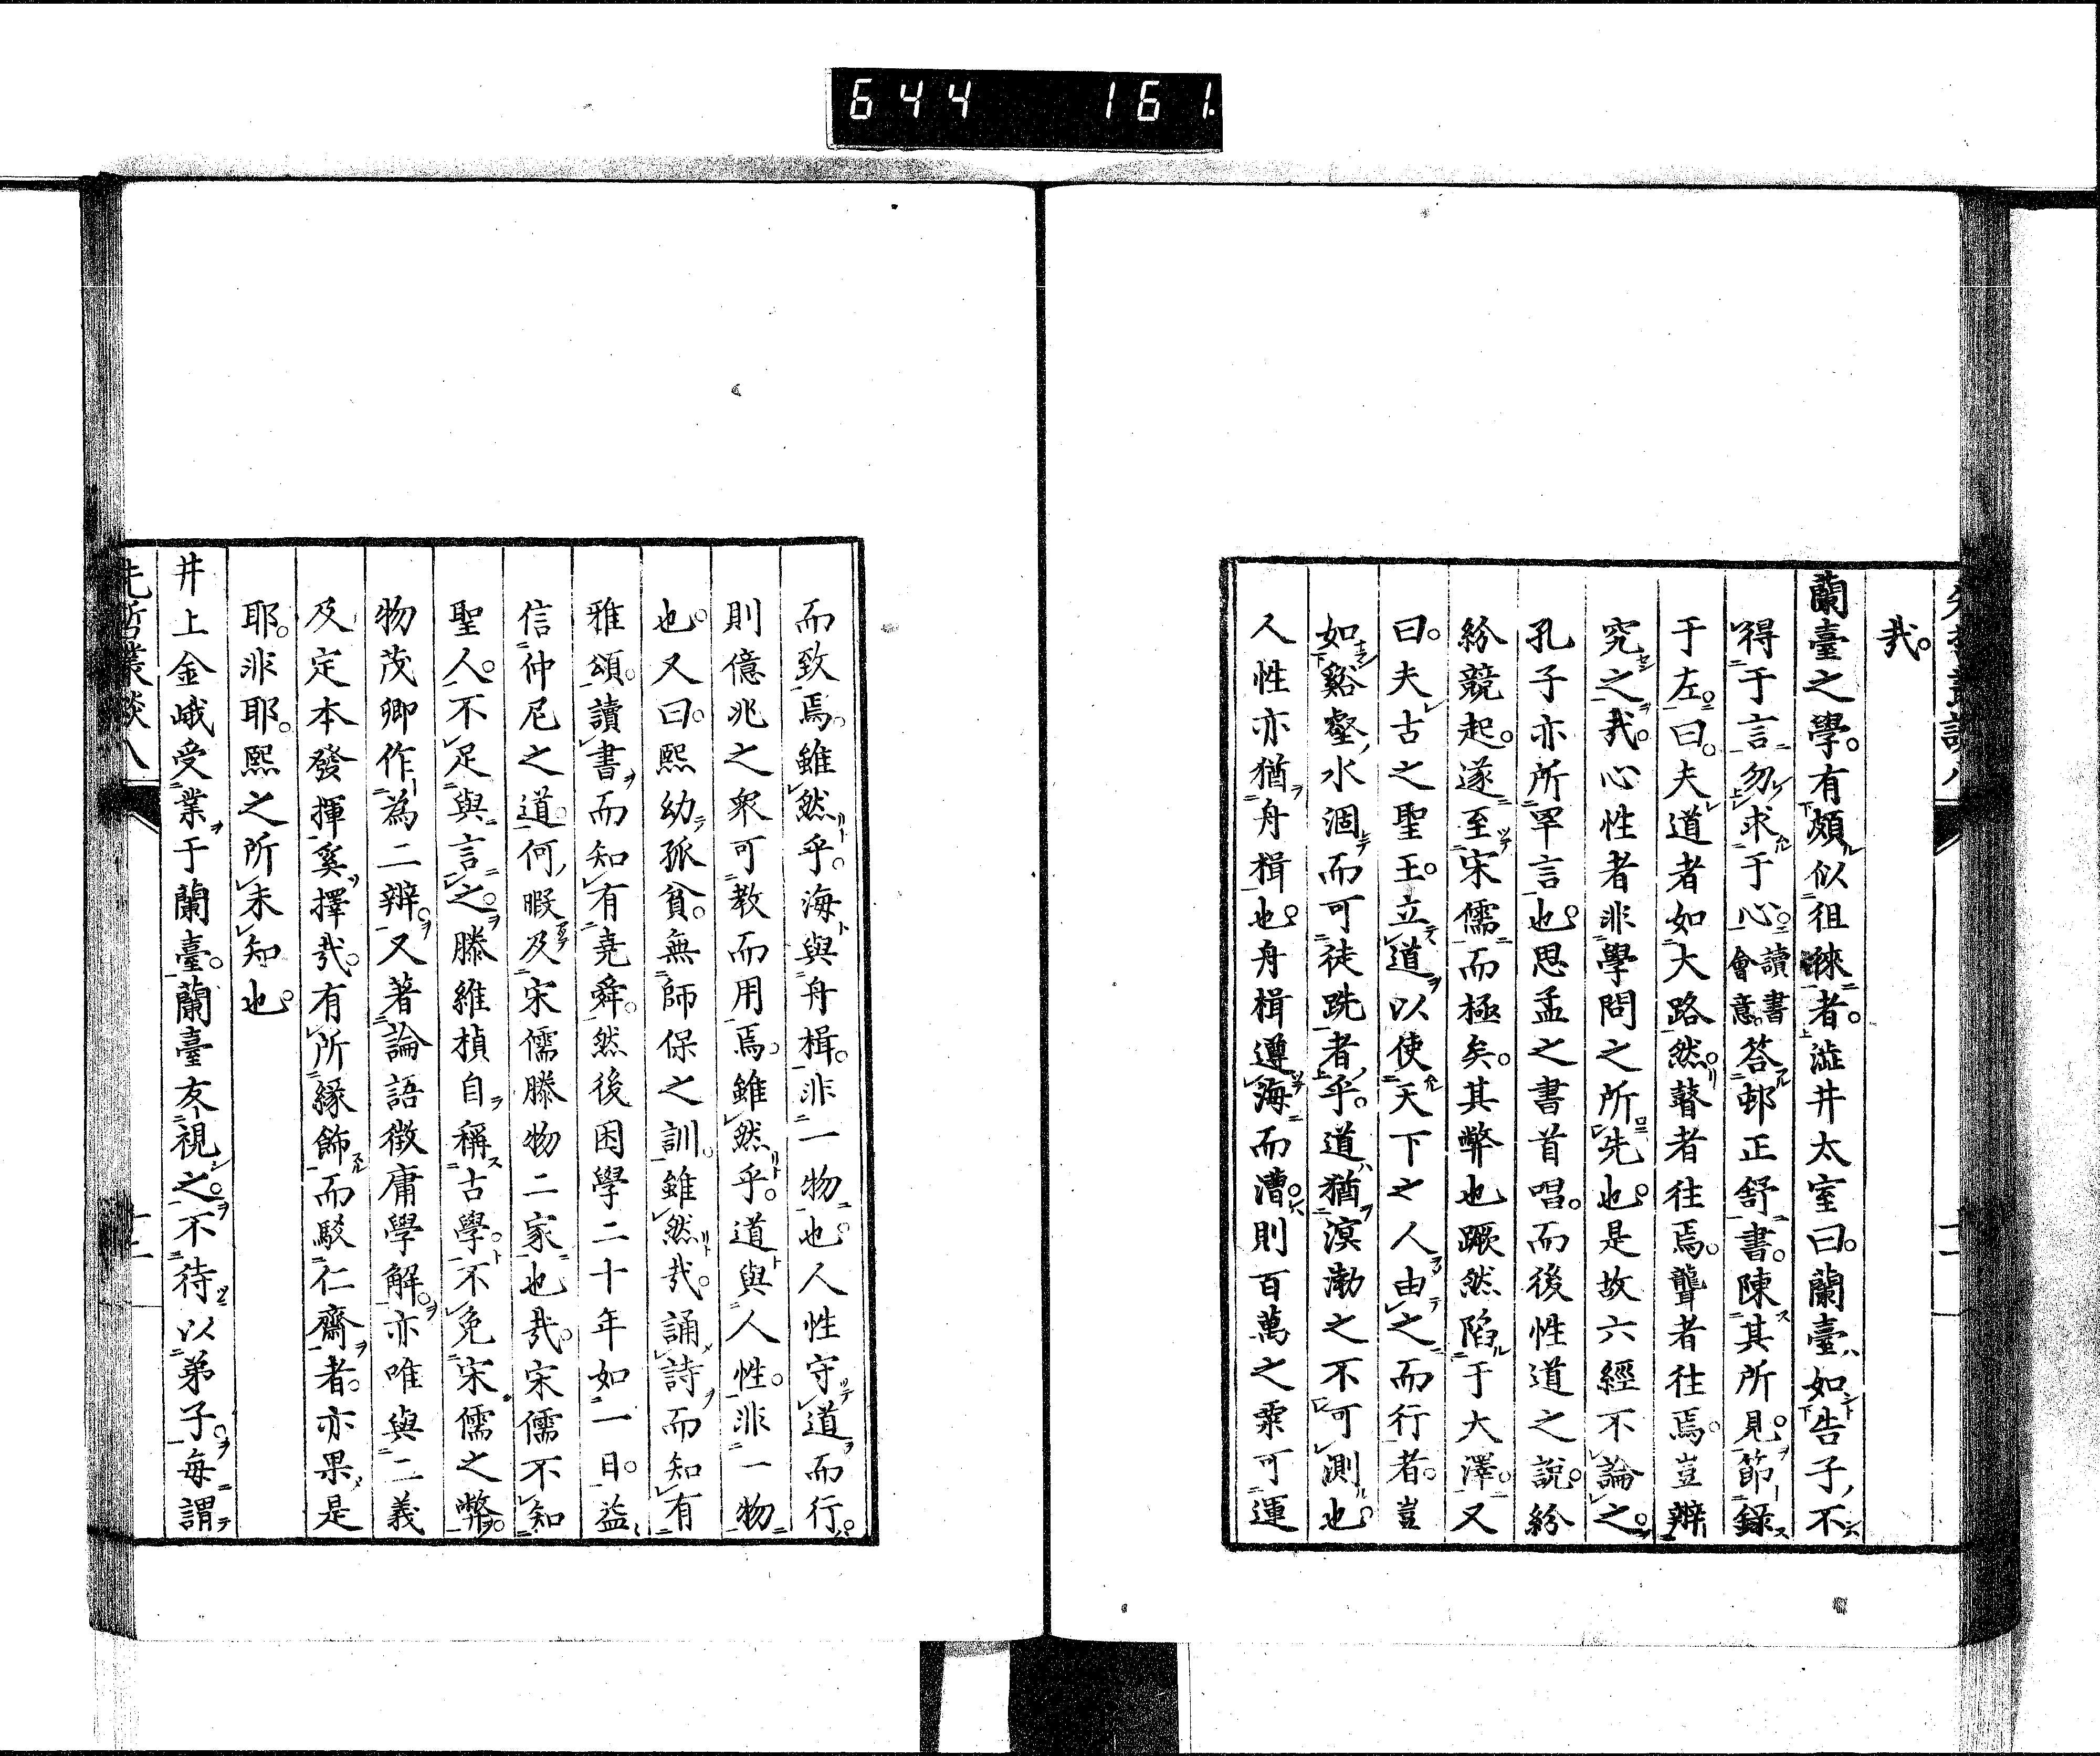 644 161
哉。
蘭臺之學。有頗似徂徠者。澁井太室曰。蘭臺如告子不
得于言勿求于心。讀書會意。答邨正舒書。陳其所見。節錄
于左。曰。夫道者如大路然。瞽者往焉。聾者往焉。豈辯
究之哉。心性者非學問之所先也。是故六經不論之。
孔子亦所罕言也。思孟之書首唱。而後性道之說。紛
紛競起。遂至宋儒而極矣。其弊也蹶然陷于大澤。又
曰。夫古之聖王。立道以使天下之人由之而行者。豈
如谿壑水涸而可徒跣者乎。道猶溟渤之不可測也。
人性亦猶舟楫也。舟楫遵海而漕。則百萬之粟可運
而致焉。雖然乎。海與舟楫。非一物也。人性守道而行。
則億兆之衆可教而用焉。雖然乎。道與人性。非一物
也。又曰。熙幼孤貧。無師保之訓。雖然哉。誦詩而知有
雅頌。讀書而知有堯舜。然後困學二十年如一日。益
信仲尼之道。何暇及宋儒滕物二家也哉。宋儒不知
聖人。不足與言之。滕維楨自稱古學。不免宋儒之弊。
物茂卿作為二辨。又著論語徵庸學解。亦唯與二義
及定本發揮奚擇哉。有所緣飾而駁仁齋者。亦果是
耶。非耶。熙之所未知也。
井上金峨受業于蘭臺。蘭臺友視之。不待以弟子。每謂
先哲叢談八